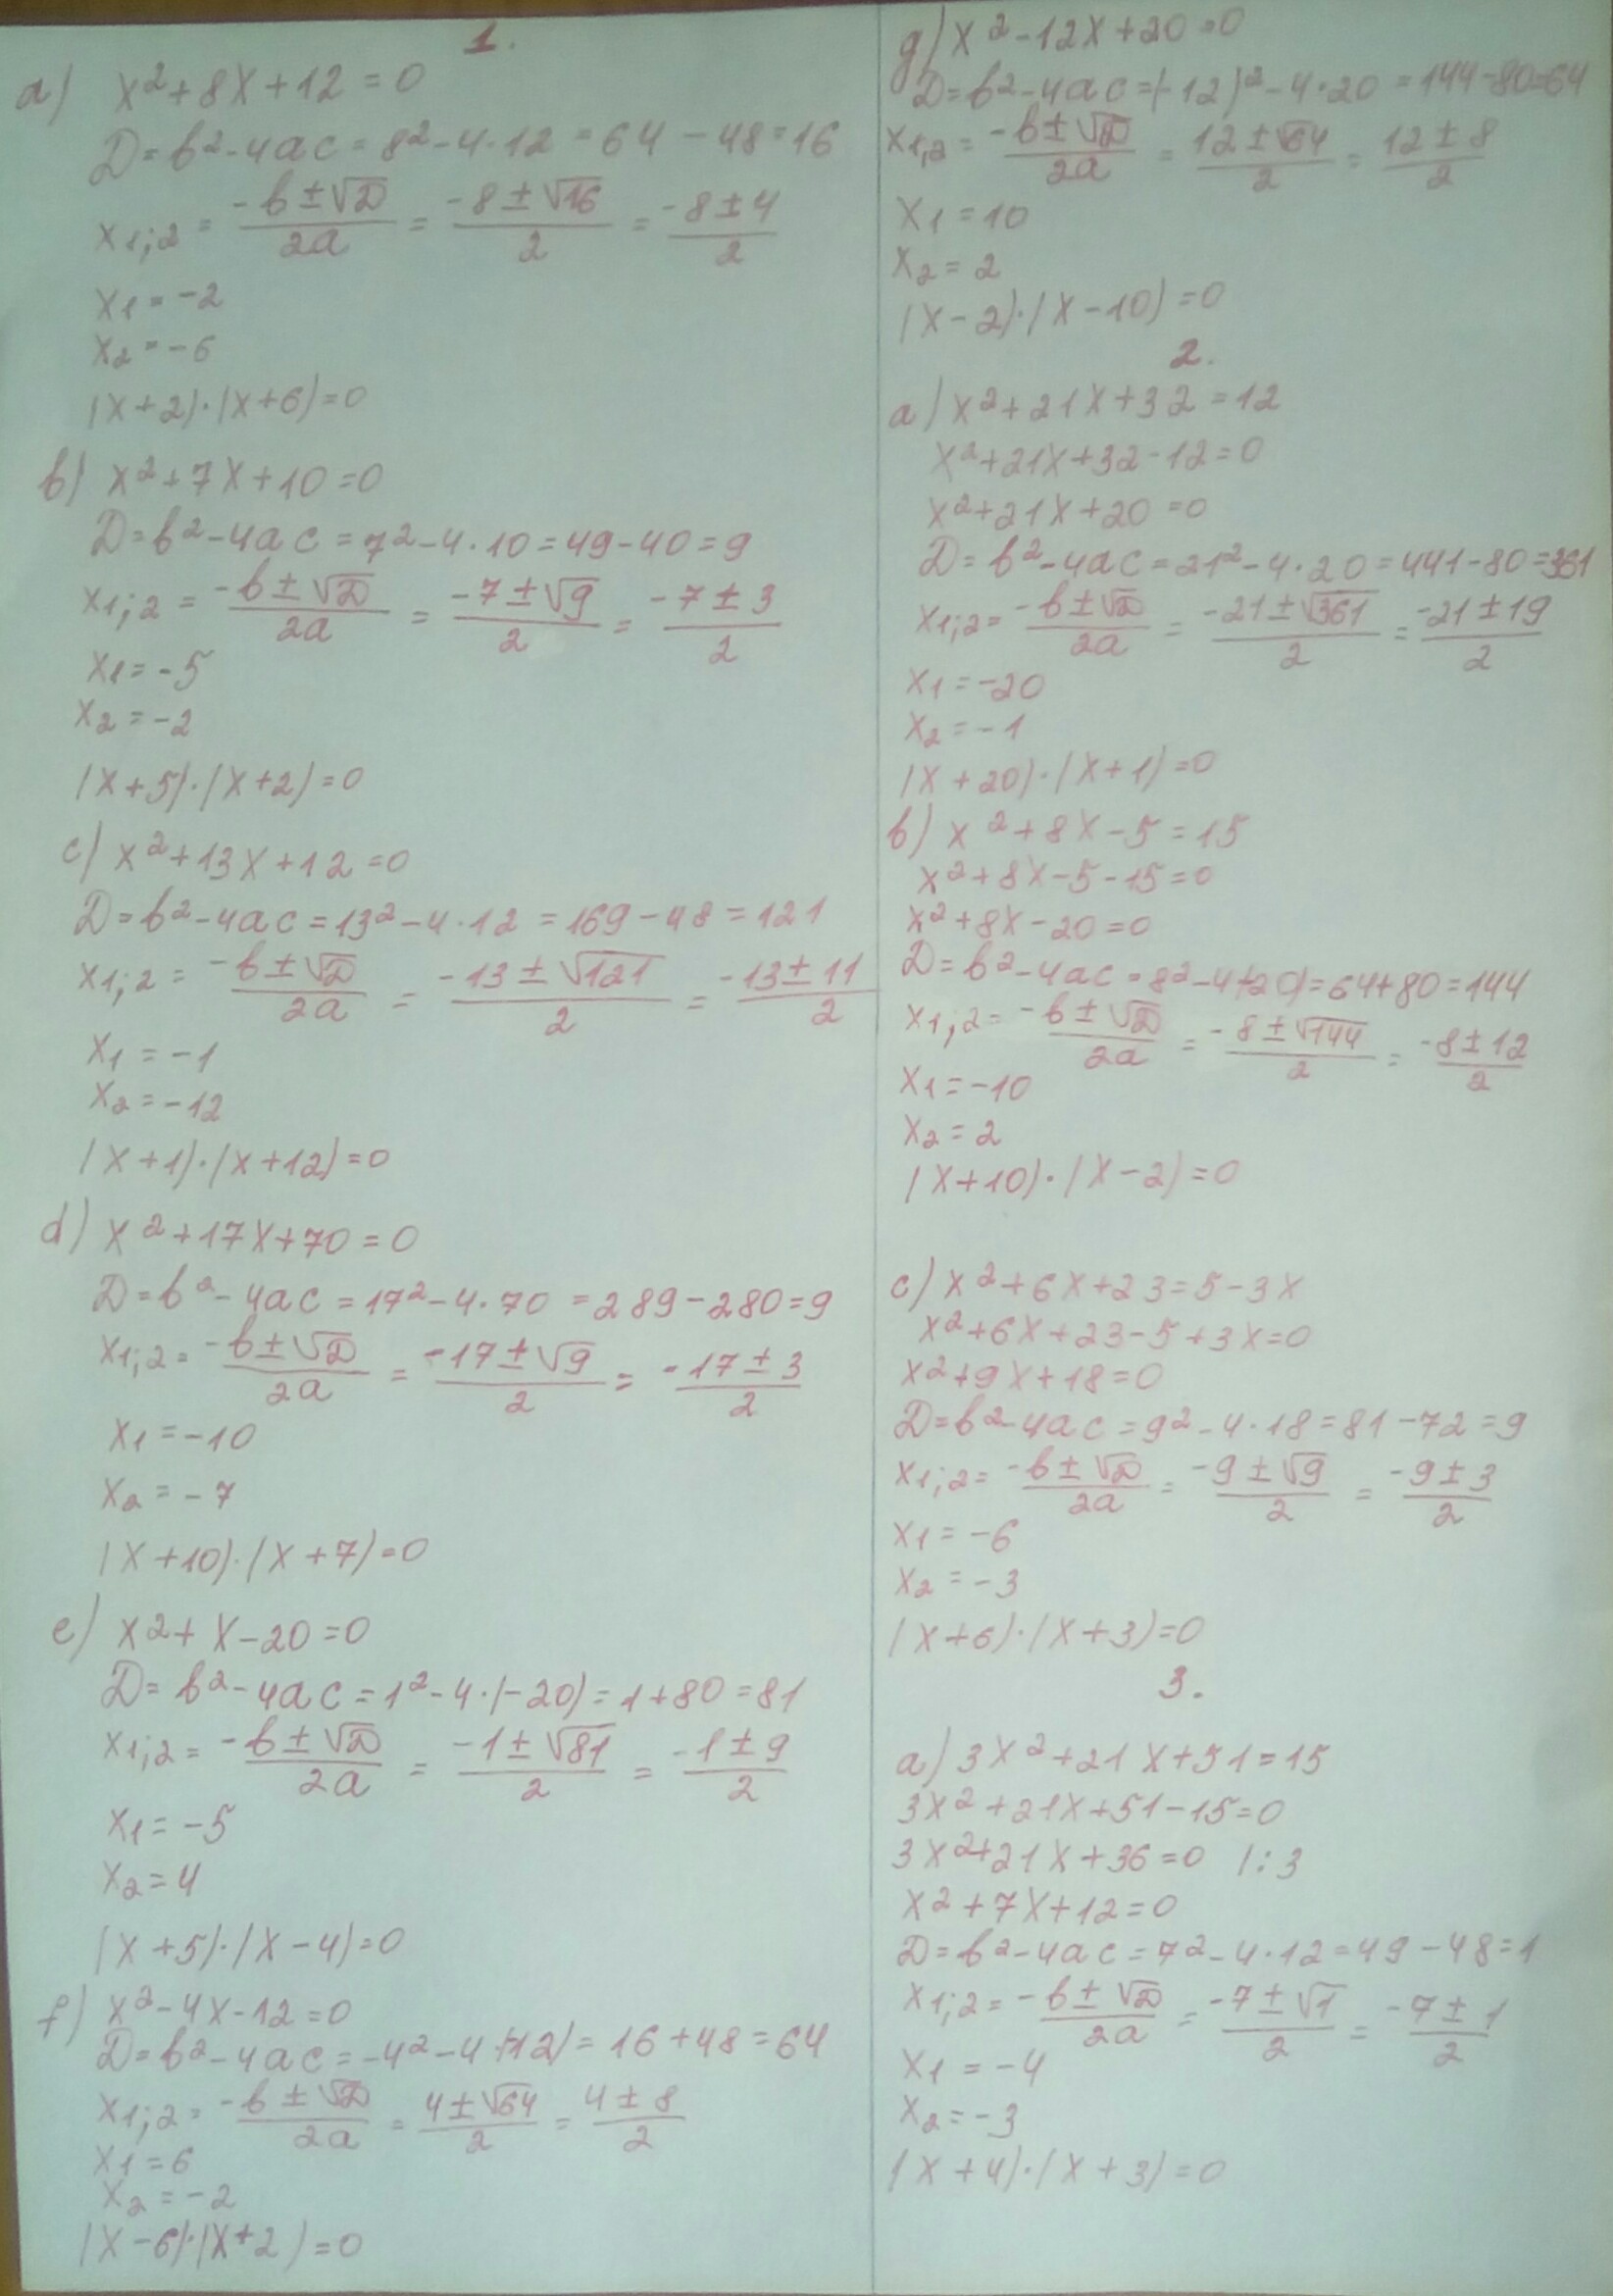 1.
a) x²+8x+12=0
D=b²-4ac=8²-4·12=64-48=16
x1;2=(-b±√D)/2a=(-8±√16)/2=(-8±4)/2
x1=-2
x2=-6
(x+2)·(x+6)=0
b) x²+7x+10=0
D=b²-4ac=7²-4·10=49-40=9
x1;2=(-b±√D)/2a=(-7±√9)/2=(-7±3)/2
x1=-5
x2=-2
(x+5)·(x+2)=0
c) x²+13x+12=0
D=b²-4ac=13²-4·12=169-48=121
x1;2=(-b±√D)/2a=(-13±√121)/2=(-13±11)/2
x1=-1
x2=-12
(x+1)·(x+12)=0
d) x²+17x+70=0
D=b²-4ac=17²-4·70=289-280=9
x1;2=(-b±√D)/2a=(-17±√9)/2=(-17±3)/2
x1=-10
x2=-7
(x+10)·(x+7)=0
e) x²+x-20=0
D=b²-4ac=1²-4·(-20)=1+80=81
x1;2=(-b±√D)/2a=(-1±√81)/2=(-1±9)/2
x1=-5
x2=4
(x+5)·(x-4)=0
f) x²-4x-12=0
D=b²-4ac=-4²-4·(-12)=16+48=64
x1;2=(-b±√D)/2a=(4±√64)/2=(4±8)/2
x1=6
x2=-2
(x-6)·(x+2)=0
g) x²-12x+20=0
D=b²-4ac=(-12)²-4·20=144-80=64
x1,2=(-b±√D)/2a=(12±√64)/2=(12±8)/2
x1=10
x2=2
(x-2)·(x-10)=0
2.
a) x²+21x+32=12
x²+21x+32-12=0
x²+21x+20=0
D=b²-4ac=21²-4·20=441-80=361
x1;2=(-b±√D)/2a=(-21±√361)/2=(-21±19)/2
x1=-20
x2=-1
(x+20)·(x+1)=0
b) x²+8x-5=15
x²+8x-5-15=0
x²+8x-20=0
D=b²-4ac=8²-4(-20)=64+80=144
x1;2=(-b±√D)/2a=(-8±√144)/2=(-8±12)/2
x1=-10
x2=2
(x+10)·(x-2)=0
c) x²+6x+23=5-3x
x²+6x+23-5+3x=0
x²+9x+18=0
D=b²-4ac=9²-4·18=81-72=9
x1;2=(-b±√D)/2a=(-9±√9)/2=(-9±3)/2
x1=-6
x2=-3
(x+6)·(x+3)=0
3.
a) 3x²+21x+51=15
3x²+21x+51-15=0
3x²+21x+36=0 |:3
x²+7x+12=0
D=b²-4ac=7²-4·12=49-48=1
x1;2=(-b±√D)/2a=(-7±√1)/2=(-7±1)/2
x1=-4
x2=-3
(x+4)·(x+3)=0